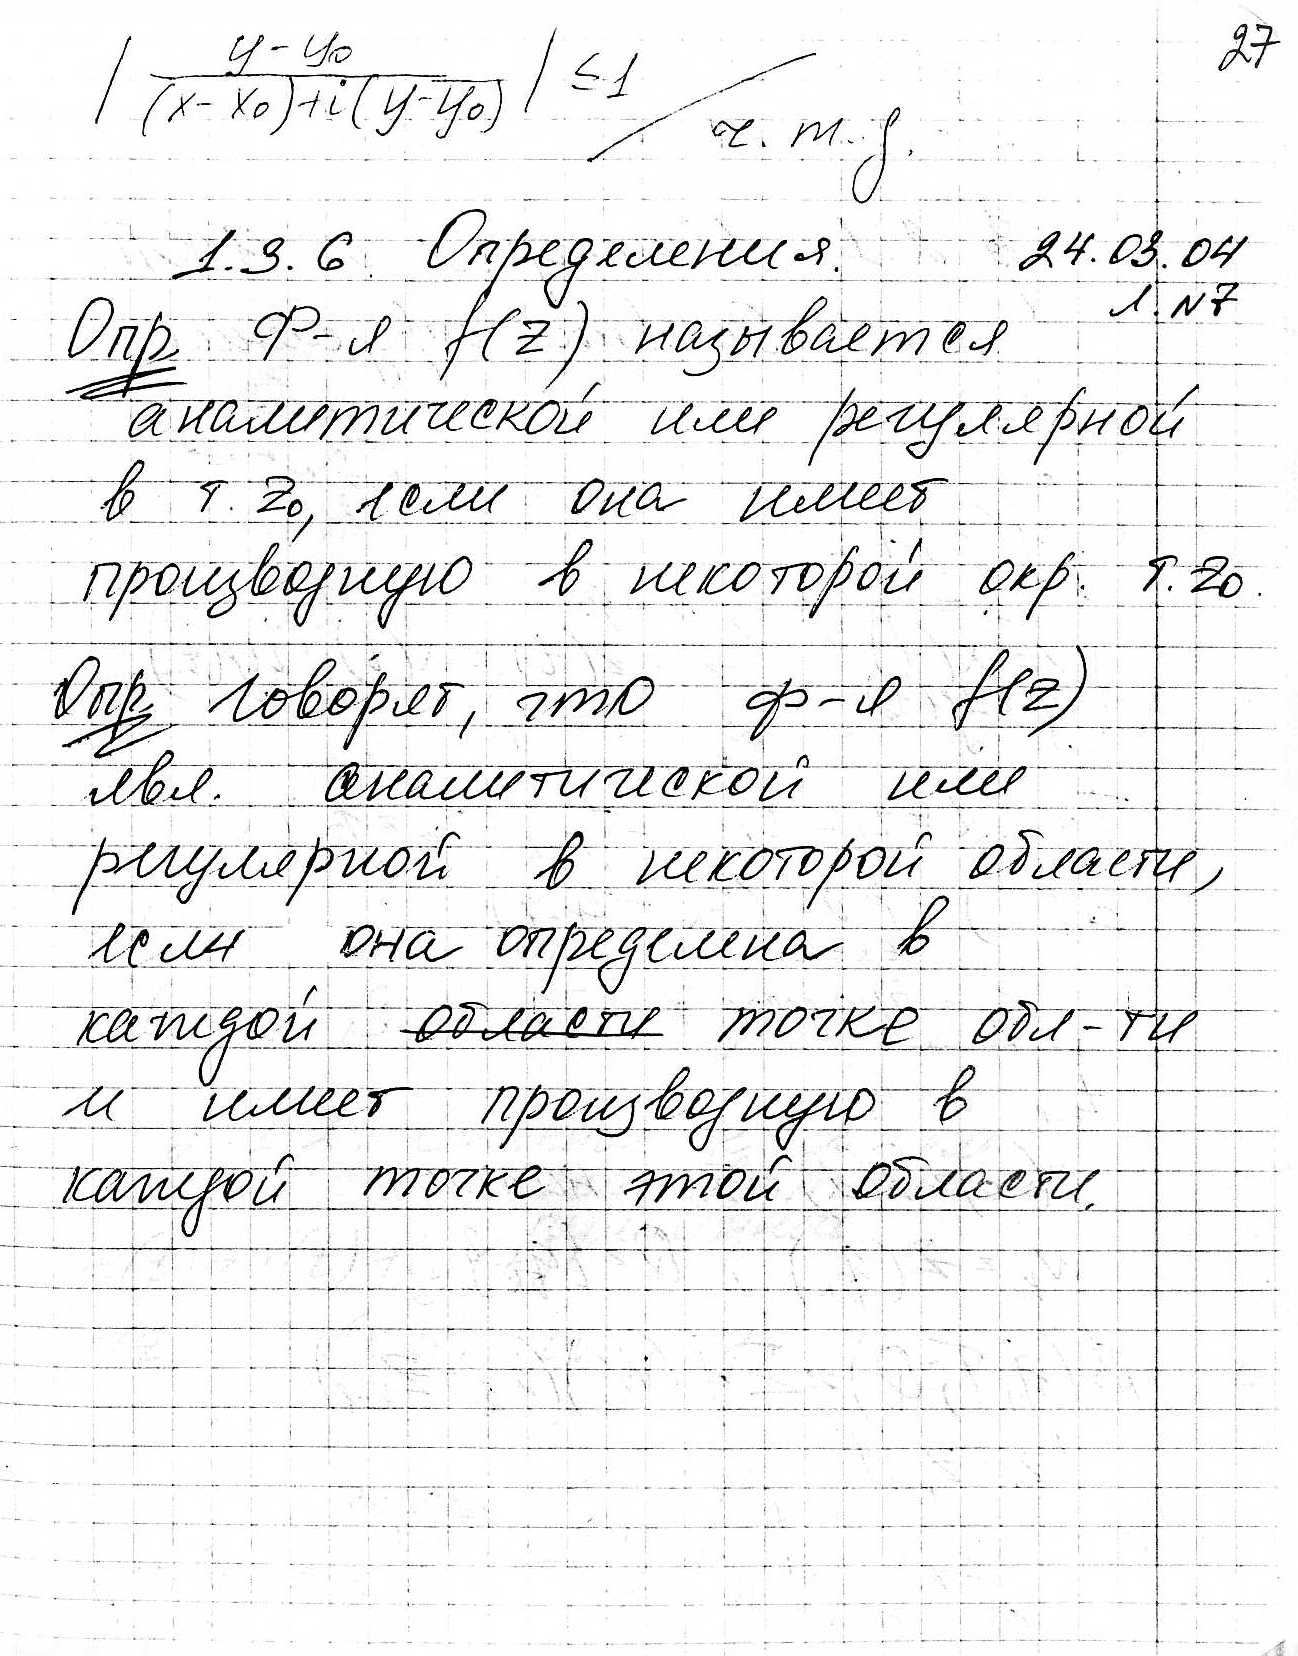 27
| (y-y₀)/((x-x₀)+i(y-y₀)) | ≤1
ч. т. д.
1.3.6 Определения. 24.03.04
Л. N7
Опр Ф-я f(z) называется
аналитической или регулярной
в т. z₀, если она имеет
производную в некоторой окр. т. z₀.
Опр Говорят, что ф-я f(z)
явл. аналитической или
регулярной в некоторой области,
если она определена в
каждой области точке обл-ти
и имеет производную в
каждой точке этой области.